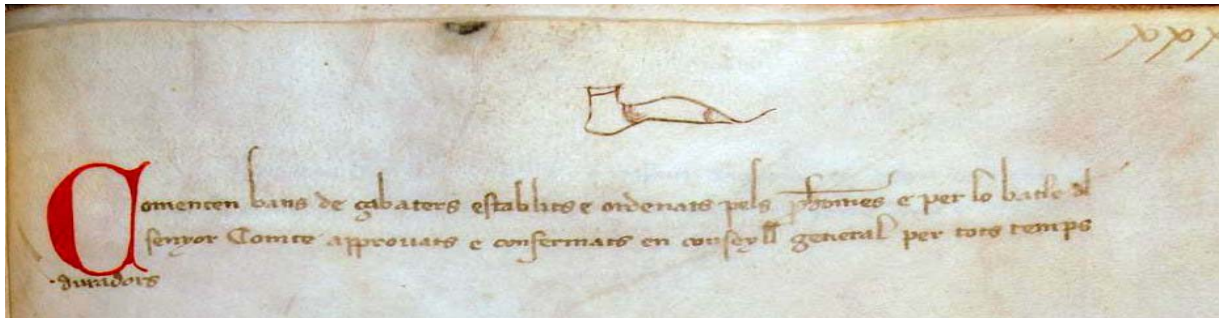 xxx
Comencen bans de çabaters establits e ordenats pels phomes e per lo batle del
senyor Comte approuats e confermats en conseyll general per tots temps
duradors